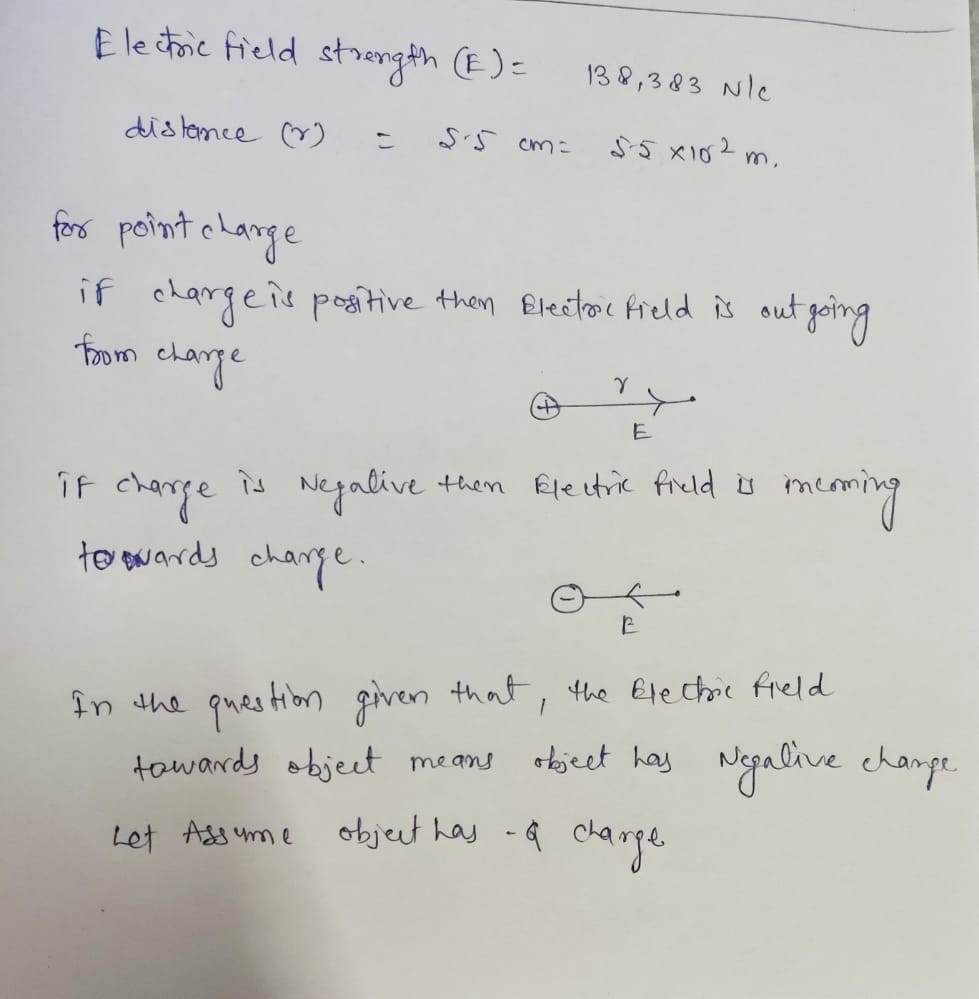 Electric field strength (E) = 138,383 N/c
distance (r) = 5.5 cm = 5.5 x10² m.
for point charge
if charge is positive then Electric field is outgoing
from charge
+ r
E
if charge is Negative then Electric field is incoming
towards charge.
-
E
In the question given that, the Electric field
towards object means object has Negative charge
Let Assume object has -q charge